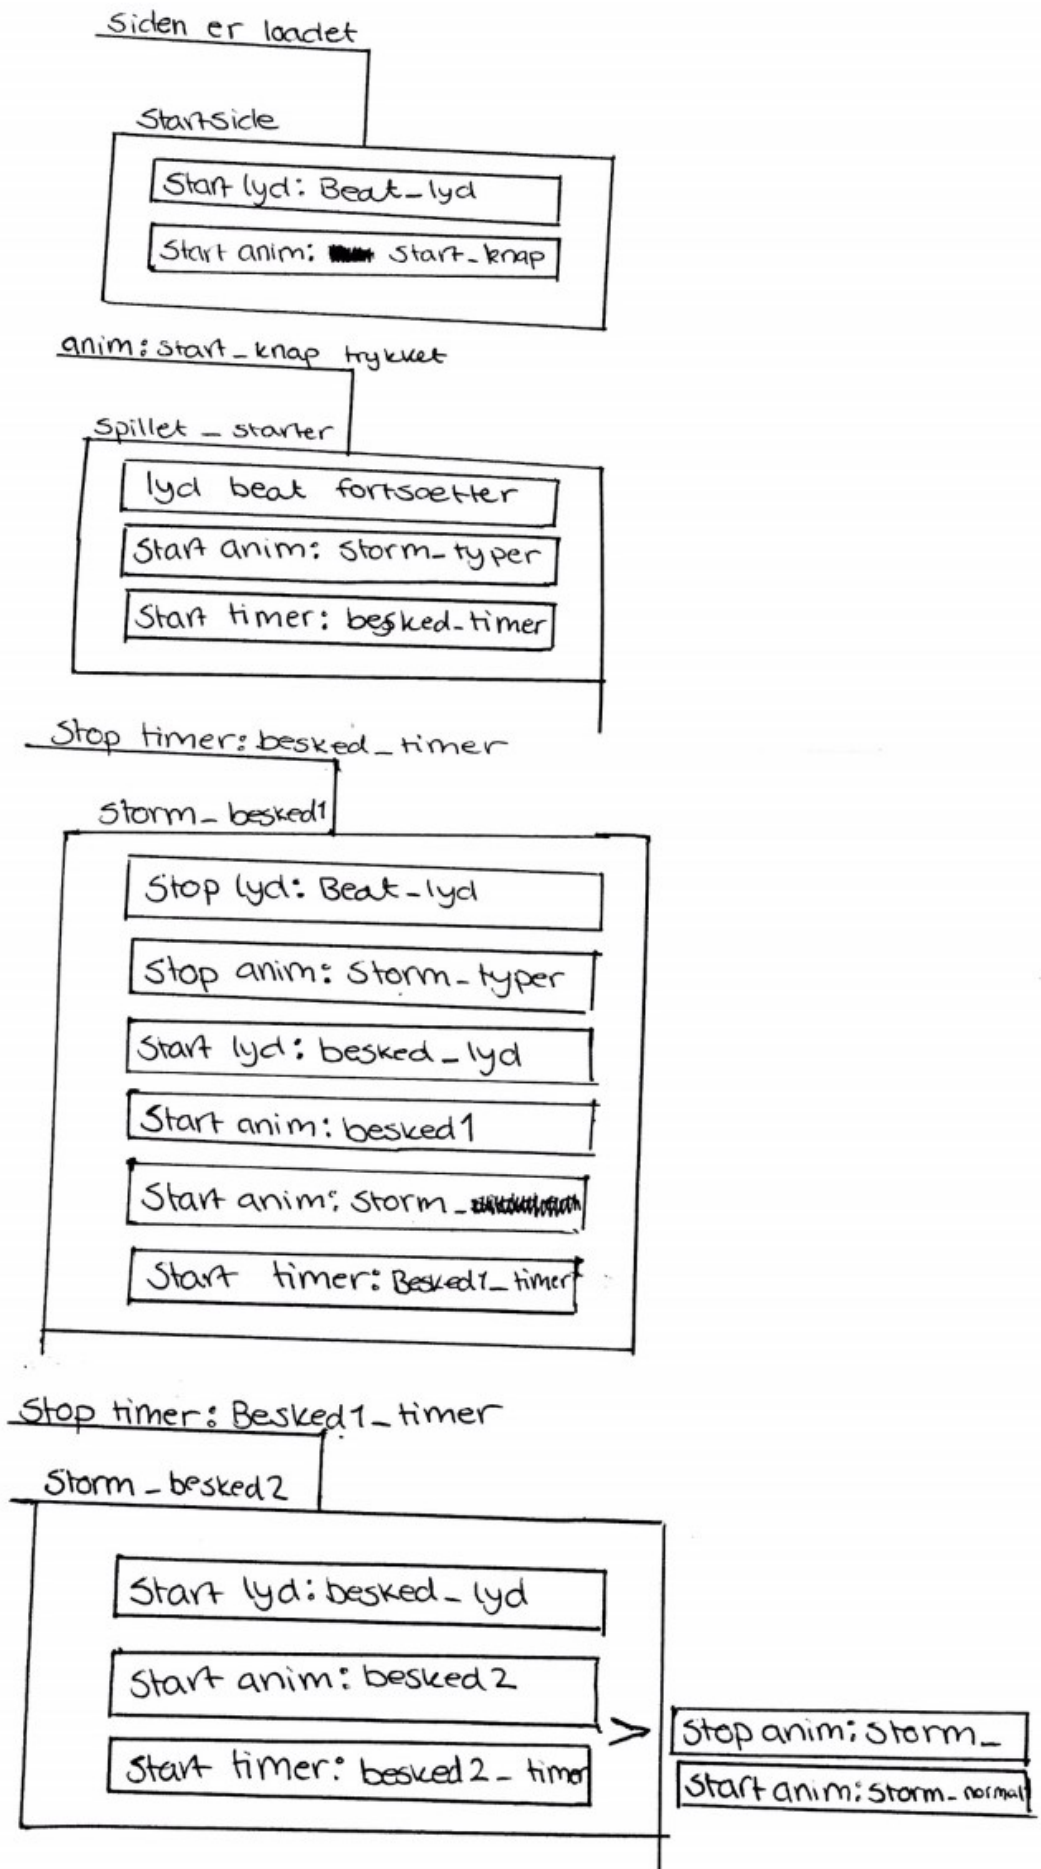 Siden er loadet
Startside
Start lyd: Beat_lyd
Start anim: start_knap
anim: start_knap trykket
Spillet_starter
lyd beat fortsætter
Start anim: storm_typer
Start timer: besked_timer
Stop timer: besked_timer
Storm_besked1
Stop lyd: Beat_lyd
Stop anim: Storm_typer
Start lyd: besked_lyd
Start anim: besked1
Start anim: Storm_
Start timer: Besked1_timer
Stop timer: Besked1_timer
Storm_besked2
Start lyd: besked_lyd
Start anim: besked2
Start timer: besked2_timer
>
Stop anim: Storm_
Start anim: Storm_normal